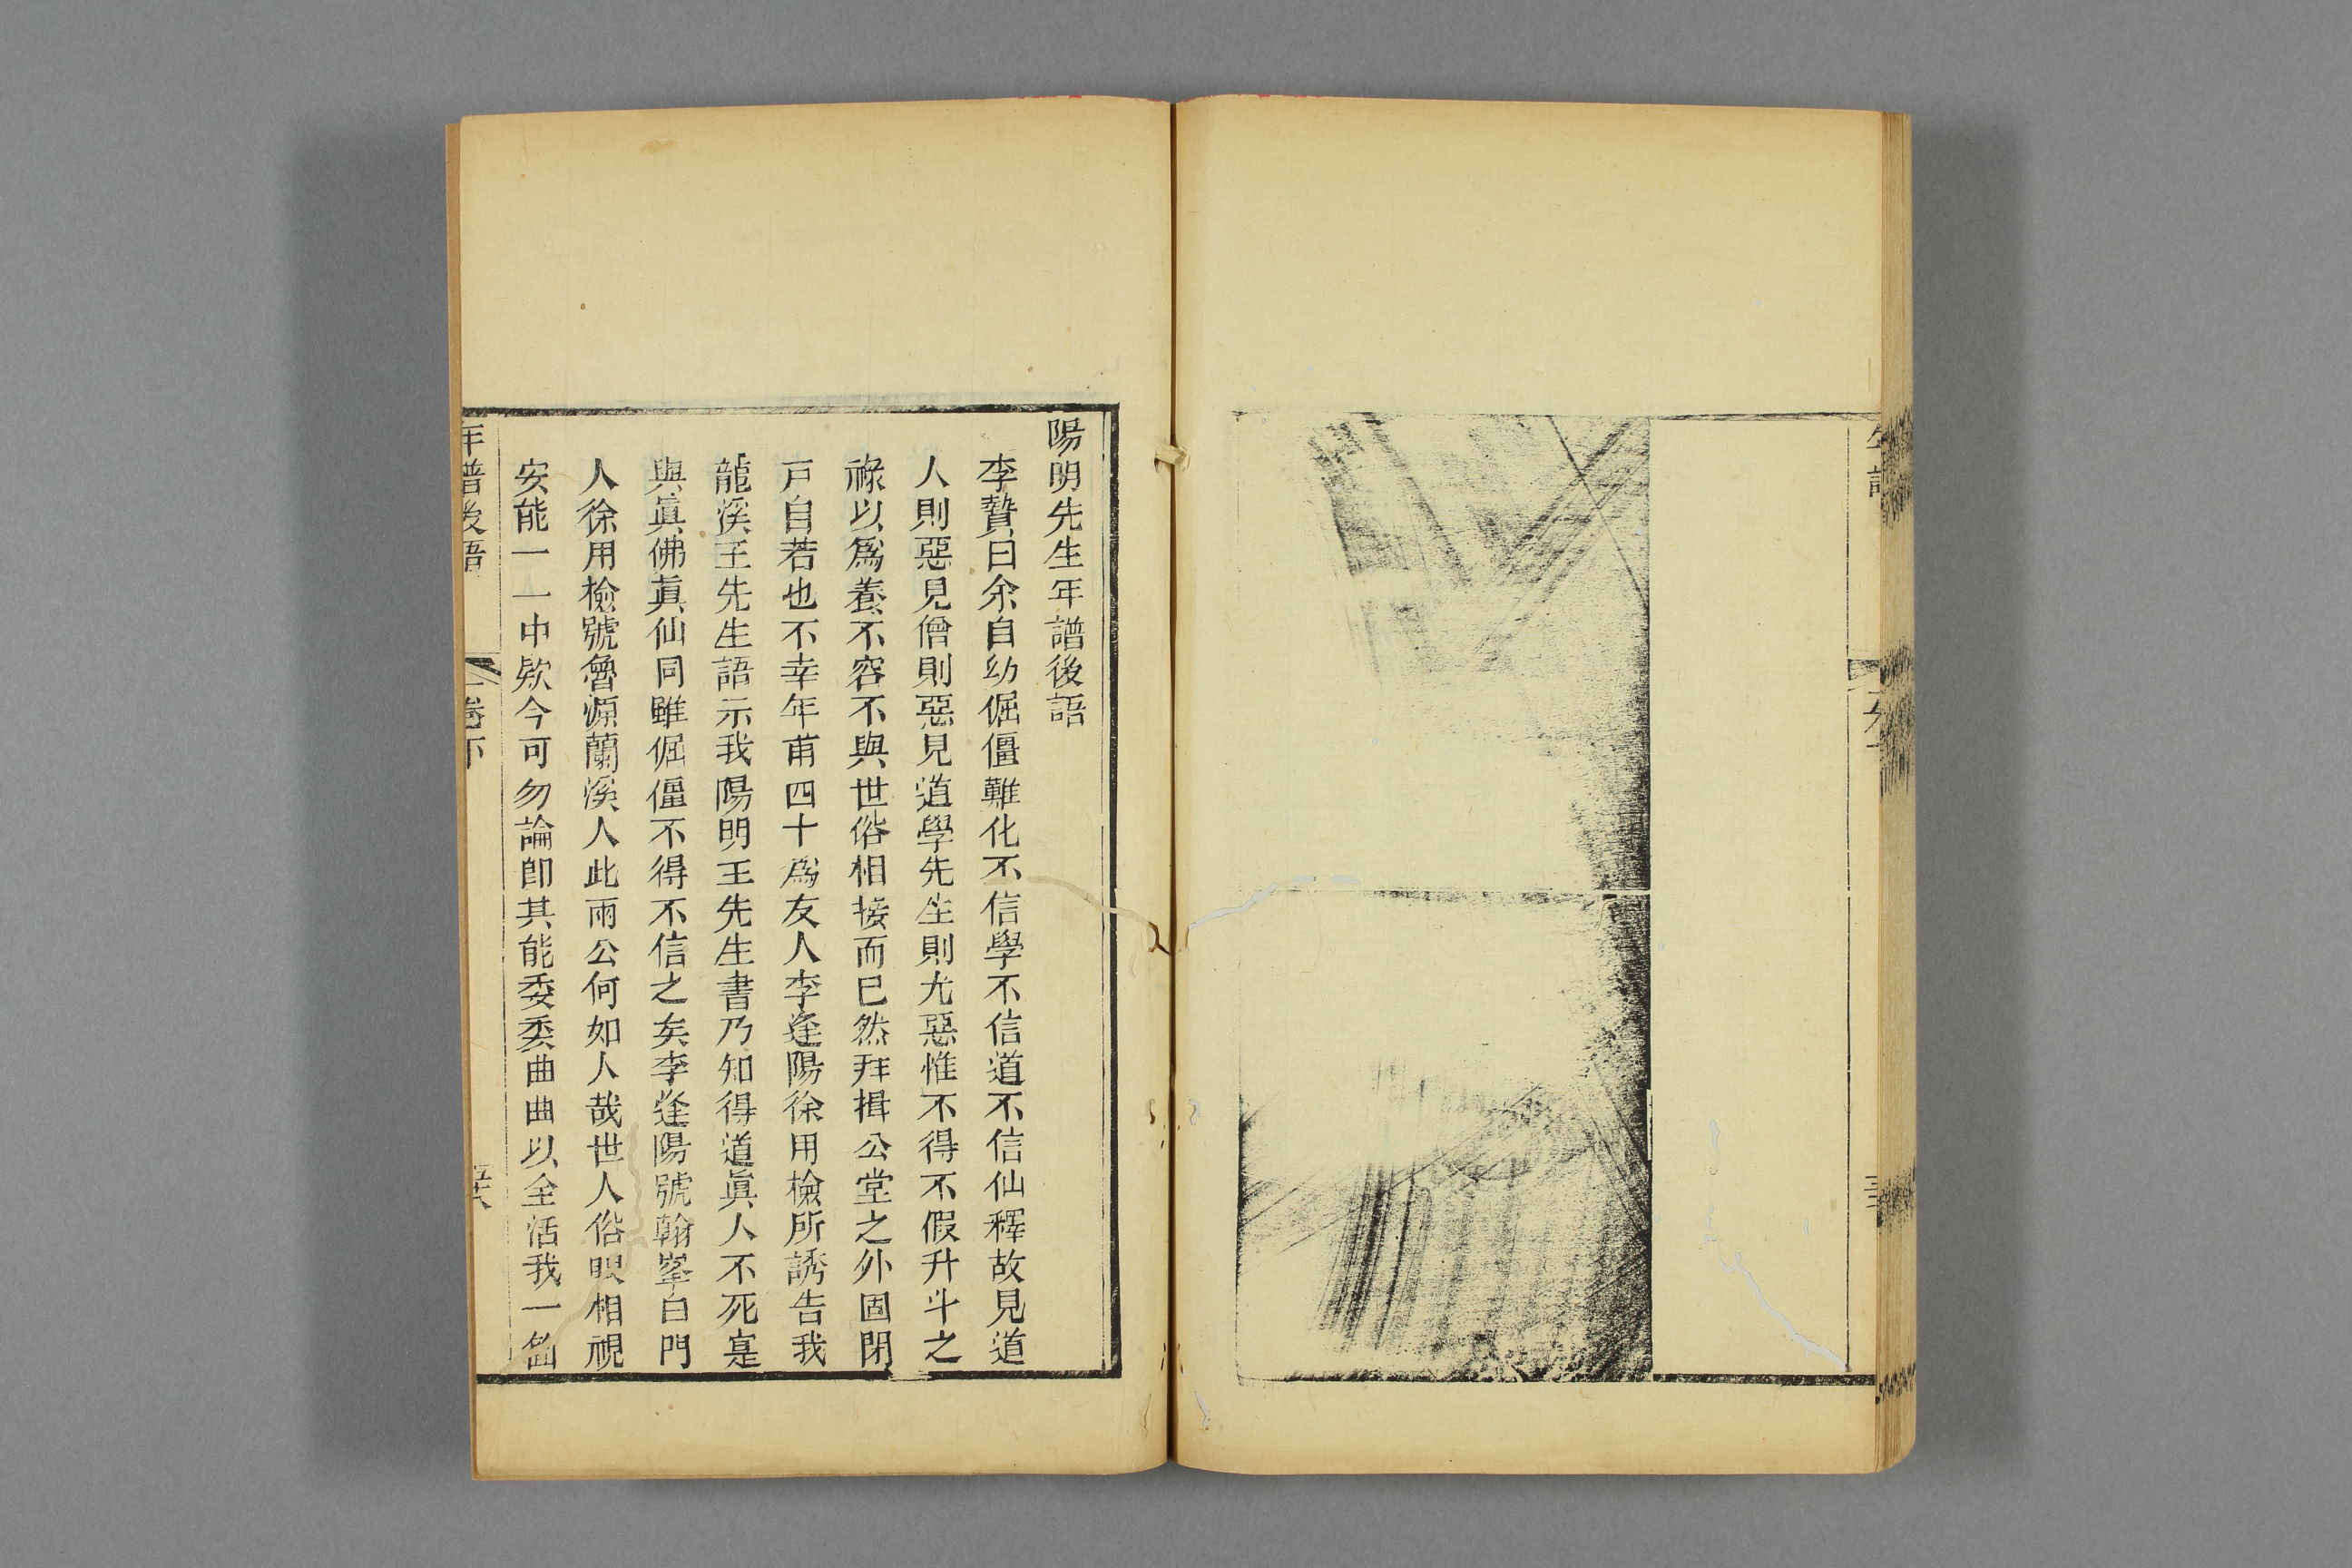 陽明先生年譜後語
李贄曰余自幼倔僵難化不信學不信道不信仙釋故見道
人則惡見僧則惡見道學先生則尤惡惟不得不假升斗之
祿以爲養不容不與世俗相接而已然拜揖公堂之外固閉
戸自若也不幸年甫四十爲友人李逢陽徐用檢所誘告我
龍溪王先生語示我陽明王先生書乃知得道眞人不死寔
與眞佛眞仙同雖倔僵不得不信之矣李逢陽號翰峯白門
人徐用檢號魯源蘭溪人此兩公何如人哉世人俗眼相視
安能一一中欵今可勿論卽其能委委曲曲以全活我一
年譜後語
卷下